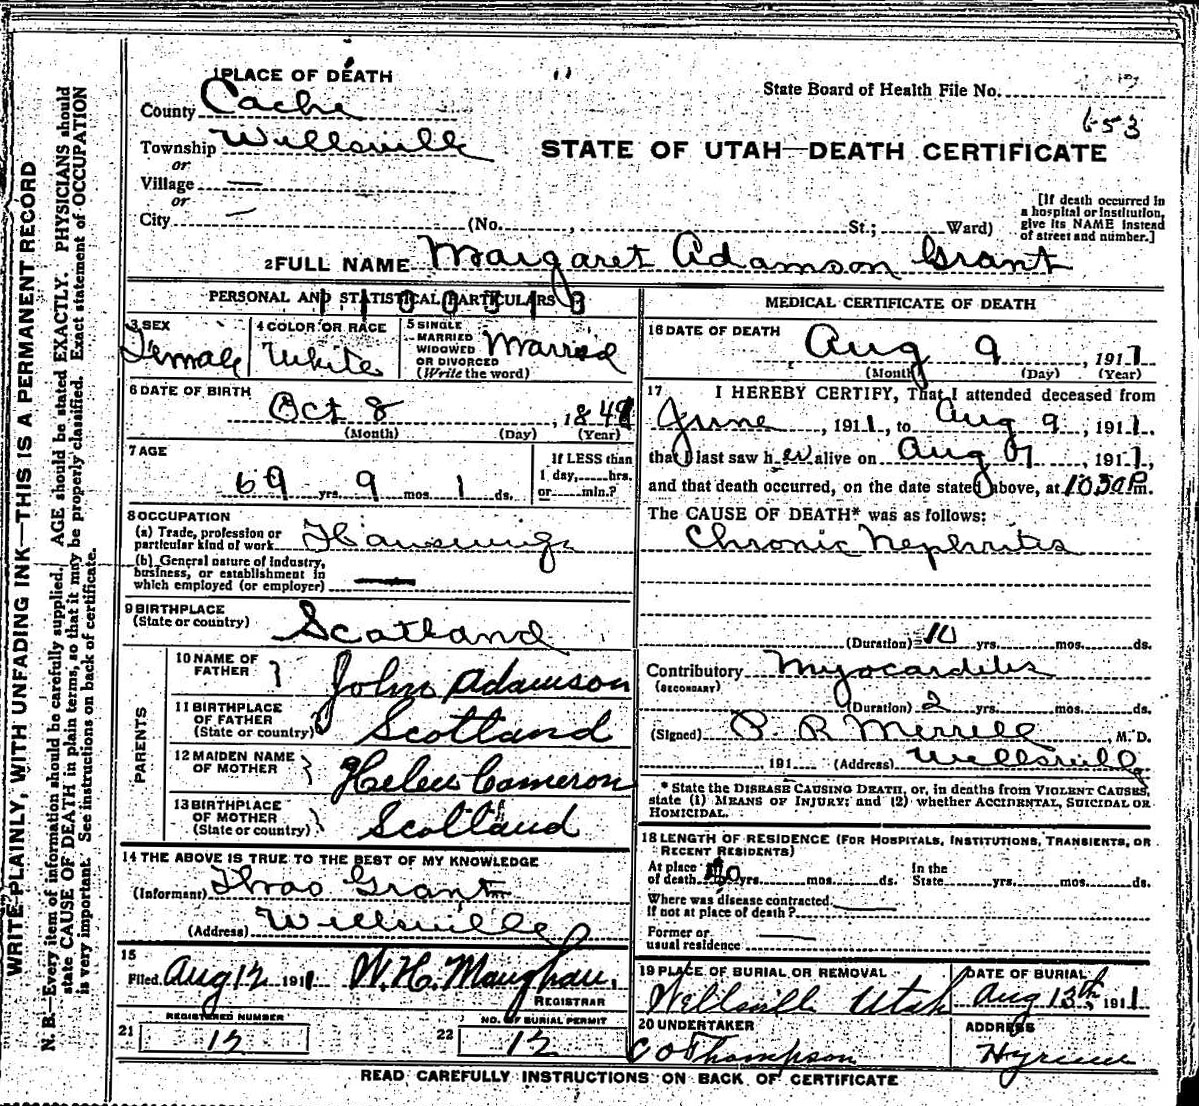 1 PLACE OF DEATH
State Board of Health File No.
County Cache
653
Township Wellsville
STATE OF UTAH—DEATH CERTIFICATE
or
Village —
or
City — (No. , St.; Ward)
[If death occurred in a hospital or institution, give its NAME instead of street and number.]
2 FULL NAME Margaret Adamson Grant
PERSONAL AND STATISTICAL PARTICULARS
3 SEX Female
4 COLOR OR RACE White
5 SINGLE MARRIED WIDOWED OR DIVORCED (Write the word) Married
6 DATE OF BIRTH Oct 8, 184
(Month) (Day) (Year)
7 AGE 69 yrs. 9 mos. 1 ds.
If LESS than 1 day, hrs. or min.?
8 OCCUPATION
(a) Trade, profession or particular kind of work
(b) General nature of industry, business, or establishment in which employed (or employer) —
9 BIRTHPLACE (State or country) Scotland
PARENTS
10 NAME OF FATHER John Adamson
11 BIRTHPLACE OF FATHER (State or country) Scotland
12 MAIDEN NAME OF MOTHER Helen Cameron
13 BIRTHPLACE OF MOTHER (State or country) Scotland
14 THE ABOVE IS TRUE TO THE BEST OF MY KNOWLEDGE
(Informant) Grant
(Address) Wellsville
15
Filed Aug 12 1911 W. H. Maughan,
REGISTRAR
REGISTERED NUMBER
21 12
NO. OF BURIAL PERMIT
22 12
MEDICAL CERTIFICATE OF DEATH
16 DATE OF DEATH
Aug 9, 1911
(Month) (Day) (Year)
17 I HEREBY CERTIFY, That I attended deceased from
June, 1911, to Aug 9, 1911,
that I last saw her alive on Aug, 1911,
and that death occurred, on the date stated above, at 1030 P.m.
The CAUSE OF DEATH* was as follows:
Chronic Nephritis
(Duration) 10 yrs. mos. ds.
Contributory Myocarditis
(SECONDARY)
(Duration) 2 yrs. mos. ds.
(Signed) P. R Merrell, M. D.
191 (Address) Wellsville
* State the DISEASE CAUSING DEATH, or, in deaths from VIOLENT CAUSES, state (1) MEANS OF INJURY; and (2) whether ACCIDENTAL, SUICIDAL OR HOMICIDAL.
18 LENGTH OF RESIDENCE (FOR HOSPITALS, INSTITUTIONS, TRANSIENTS, OR RECENT RESIDENTS)
At place of death yrs. mos. ds. In the State yrs. mos. ds.
Where was disease contracted
If not at place of death?
Former or usual residence
19 PLACE OF BURIAL OR REMOVAL Wellsville Utah
DATE OF BURIAL Aug 13th 1911
20 UNDERTAKER C O Thompson
ADDRESS Hyrum
READ CAREFULLY INSTRUCTIONS ON BACK OF CERTIFICATE
WRITE PLAINLY, WITH UNFADING INK—THIS IS A PERMANENT RECORD
N. B.—Every item of information should be carefully supplied. AGE should be stated EXACTLY. PHYSICIANS should
state CAUSE OF DEATH in plain terms, so that it may be properly classified. Exact statement of OCCUPATION
is very important. See instructions on back of certificate.